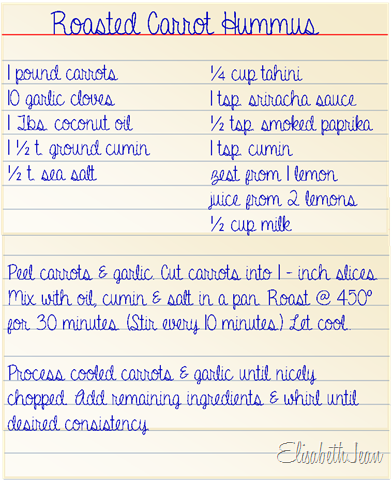 Roasted Carrot Hummus
1 pound carrots
10 garlic cloves
1 Tbs. coconut oil
1 ½ t. ground cumin
½ t. sea salt
¼ cup tahini
1 tsp. sriracha sauce
½ tsp. smoked paprika
1 tsp. cumin
zest from 1 lemon
juice from 2 lemons
½ cup milk
Peel carrots & garlic. Cut carrots into 1 - inch slices.
Mix with oil, cumin & salt in a pan. Roast @ 450°
for 30 minutes. (Stir every 10 minutes.) Let cool.
Process cooled carrots & garlic until nicely
chopped. Add remaining ingredients & whirl until
desired consistency.
ElisabethJean